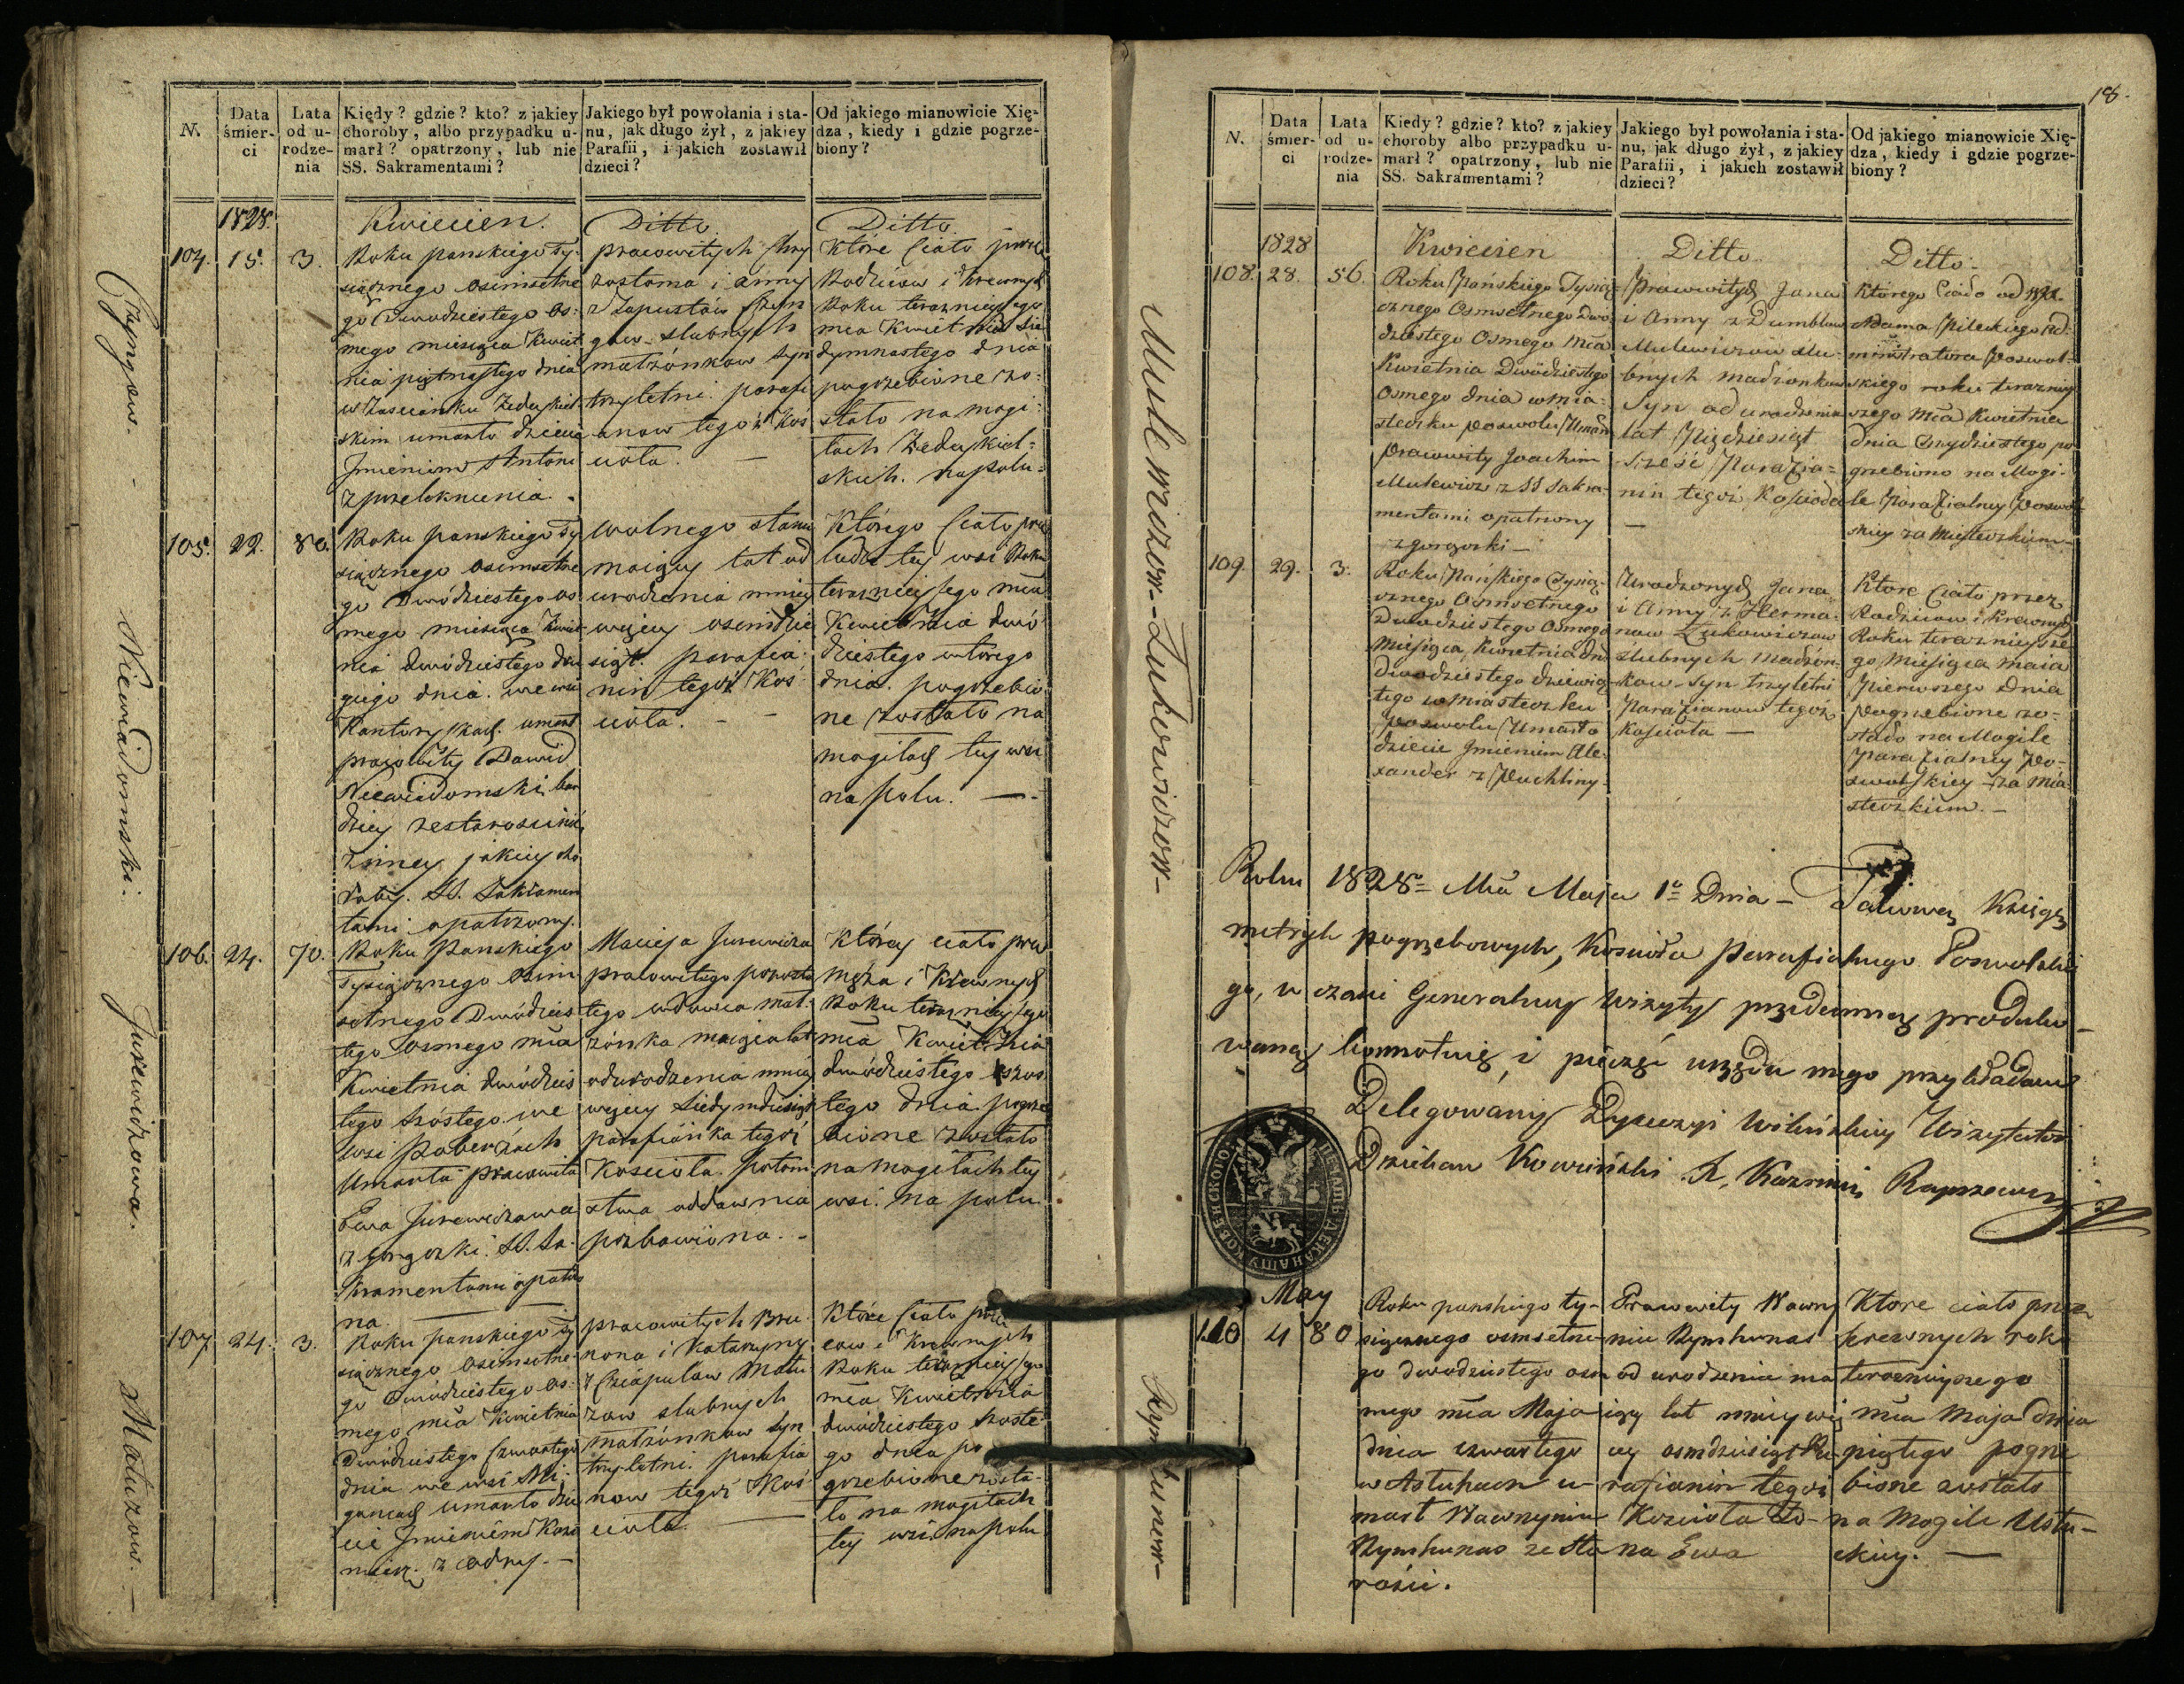 N.
Data śmierci
Lata od urodzenia
Kiędy? gdzie? kto? z jakiey
choroby, albo przypadku u-
marł? opatrzony, lub nie
SS. Sakramentami?
Jakiego był powołania i sta-
nu, jak długo żył, z jakiey
Parafii, i jakich zostawił
dzieci?
Od jakiego mianowicie Xię-
dza, kiedy i gdzie pogrze-
biony?
1828.
Kwiecien.
Ditto
Ditto
Czyngow.
104. 15. 3.
Roku panskiego ty-
siącznego osimsetne
go Dwudziestego os-
mego miesiąca Kwiet
nia piętnastego dnia
w Zascianku
skim umarło dziecie
Jmieniem Antoni
z przelęknienia.
pracowitych Chry
zostoma i Anny
z Łapustow
gow slubnych
małżonkow syn
trzyletni. parafi
anow tegoż Koś
cioła. —
Które Ciało przez
Rodzicow i krewnych
Roku teraznieyszego
mca Kwietnia sie
dymnastego dnia
pogrzebione zo-
stało na mogi-
łach
skich. na polu
Niewiadomski.
105. 22. 80.
Roku panskiego ty
siącznego osimsetne
go Dwódziestego os
mego miesiąca Kwiet
nia dwódziestego dru
giego dnia. we wsi
umarł
pracowity Dawid
Niewiadomski bar
dziey zestarosci niż
z inney jakiey cho
roby. SS. Sakramen
tami opatrzony.
wolnego stanu
maiący lat od
urodzenia mniey
więcey osimdzie
siąt. parafia-
nin tegoż Koś
cioła. — —
Którego Ciało przez
ludzi tey wsi Roku
teraznieyszego mca
Kwietnia dwó
dziestego wtorego
dnia. pogrzebio
ne zostało na
mogiłach tey wsi
na polu. —
Jurewiczowa.
106. 24. 70.
Roku Panskiego
Tysiącznego osim
setnego Dwódzies
tego Osmego mca
Kwietnia dwódzies
tego szóstego we
wsi Paberżach
Umarła pracowita
Ewa Jurewiczowa
z gorączki. SS. Sa-
kramentami opatrzo
na. —
Macieja Jurewicza
pracowitego pozosta
tego wdowca mał-
żonka maiąca lat
od urodzenia mniey
więcey siedymdziesiąt
parafianka tegoż
Koscioła. potom
stwa oddawnia
pozbawiona. -
Którey ciało przez
męża i Krewnych
Roku teraznieyszego
mca Kwietnia
dwódziestego szos
tego dnia pogrze
bione zostało
na mogiłach tey
wsi. na polu
Maluzow. —
107. 24. 3.
Roku panskiego ty
siącznego osimsetne
go Dwódziestego os
mego mca Kwietnia
Dwódziestego Czwartego
dnia we wsi
umarło dzie
cie Jmieniem Kazi
mierz. z odry. —
pracowitych Bru
nona i Katarzyny
z Czapulow Malu
zow slubnych
małżonkow syn
trzyletni. parafia
now tegoż Koś
cioła. —
Które Ciało przez
oycow i Krewnych
Roku teraznieyszego
mca Kwietnia
dwódziestego szoste
go dnia po
grzebione zosta-
ło na mogiłach
tey wsi na polu
18.
N.
Data śmierci
Lata od urodzenia
Kiedy? gdzie? kto? z jakiey
choroby albo przypadku u-
marł? opatrzony, lub nie
SS. Sakramentami?
Jakiego był powołania i sta-
nu, jak długo żył, z jakiey
Parafii, i jakich zostawił
dzieci?
Od jakiego mianowicie Xię-
dza, kiedy i gdzie pogrze-
biony?
1828
Kwiecień
Ditto
Ditto
Mulewiczow-
108. 28. 56.
Roku Pańskiego Tysią-
cznego Osmsetnego Dwu-
dziestego Osmego Mca
Kwietnia Dwódziestego
Osmego dnia w Mia-
steczku Poswolu Umarł
Pracowity Joachim
Mulewicz z SS Sakra-
mentami opatrzony
z gorączki —
Pracowitych Jana
i Anny z Dumblow
Mulewiczow slu-
bnych małżonkow
Syn od urodzenia
lat Pięćdziesiąt
sześć Parafia-
nin tegoż Koscioła
—
Którego Ciało od
Adama Pileckiego Ad-
ministratora Poswol-
skiego roku teraznieg
szego Mca Kwietnia
dnia Trzydziestego po
grzebiono na Mogi-
le Parafialney Poswol-
skiey za Miasteczkiem —
Zukowiczow-
109. 29. 3.
Roku Pańskiego Tysią-
cznego Osmsetnego
Dwudziestego Osmego
Miesiąca Kwietnia dnia
Dwudziestego dziewią-
tego w Miasteczku
Poswolu Umarło
dziecie Jmieniem Ale-
xander z Puchliny
Urodzonych Jana
i Anny z Herma-
now Zukowiczow
slubnych małżon-
kow Syn trzyletni
Parafianow tegoż
Koscioła —
Ktore Ciało przez
Rodzicow i Krewnych
Roku teraznieysze
go Miesiąca Maia
Pierwszego Dnia
Pogrzebione zo-
stało na Mogile
Parafialney Po-
swolskiey za Mia-
steczkiem. —
Roku 1828 = Mca Maja 1o Dnia — Takową Księgę
metryk pogrzebowych, Kościoła Parafialnego Poswolskie
go, w czasie Generalney Wizyty przedemną produko-
waną, i pieczęć urzędu mego przykładam
Delegowany Dyecezyi Wileńskiey Wizytator
Dziekan Kowieński X. Kazmierz
Rymkunow-
May
110 4 80
Roku panskiego ty-
siącznego osmsetne
go dwudziestego os
mego mca Maja
dnia czwartego
w Astukach u-
marł Wawrzyniec
Rymkunas ze sta
rości.
Pracowity Wawrzy
niec Rymkunas
od urodzenia ma
iący lat mniey wię
cey osmdziesiąt Pa
rafianin tegoż
Kościoła żo-
na Ewa
Ktore ciało przez
krewnych roku
teraznieyszego
mca Maja dnia
piątego pogrze
bione zostało
na Mogile Ustu-
ckiey. —